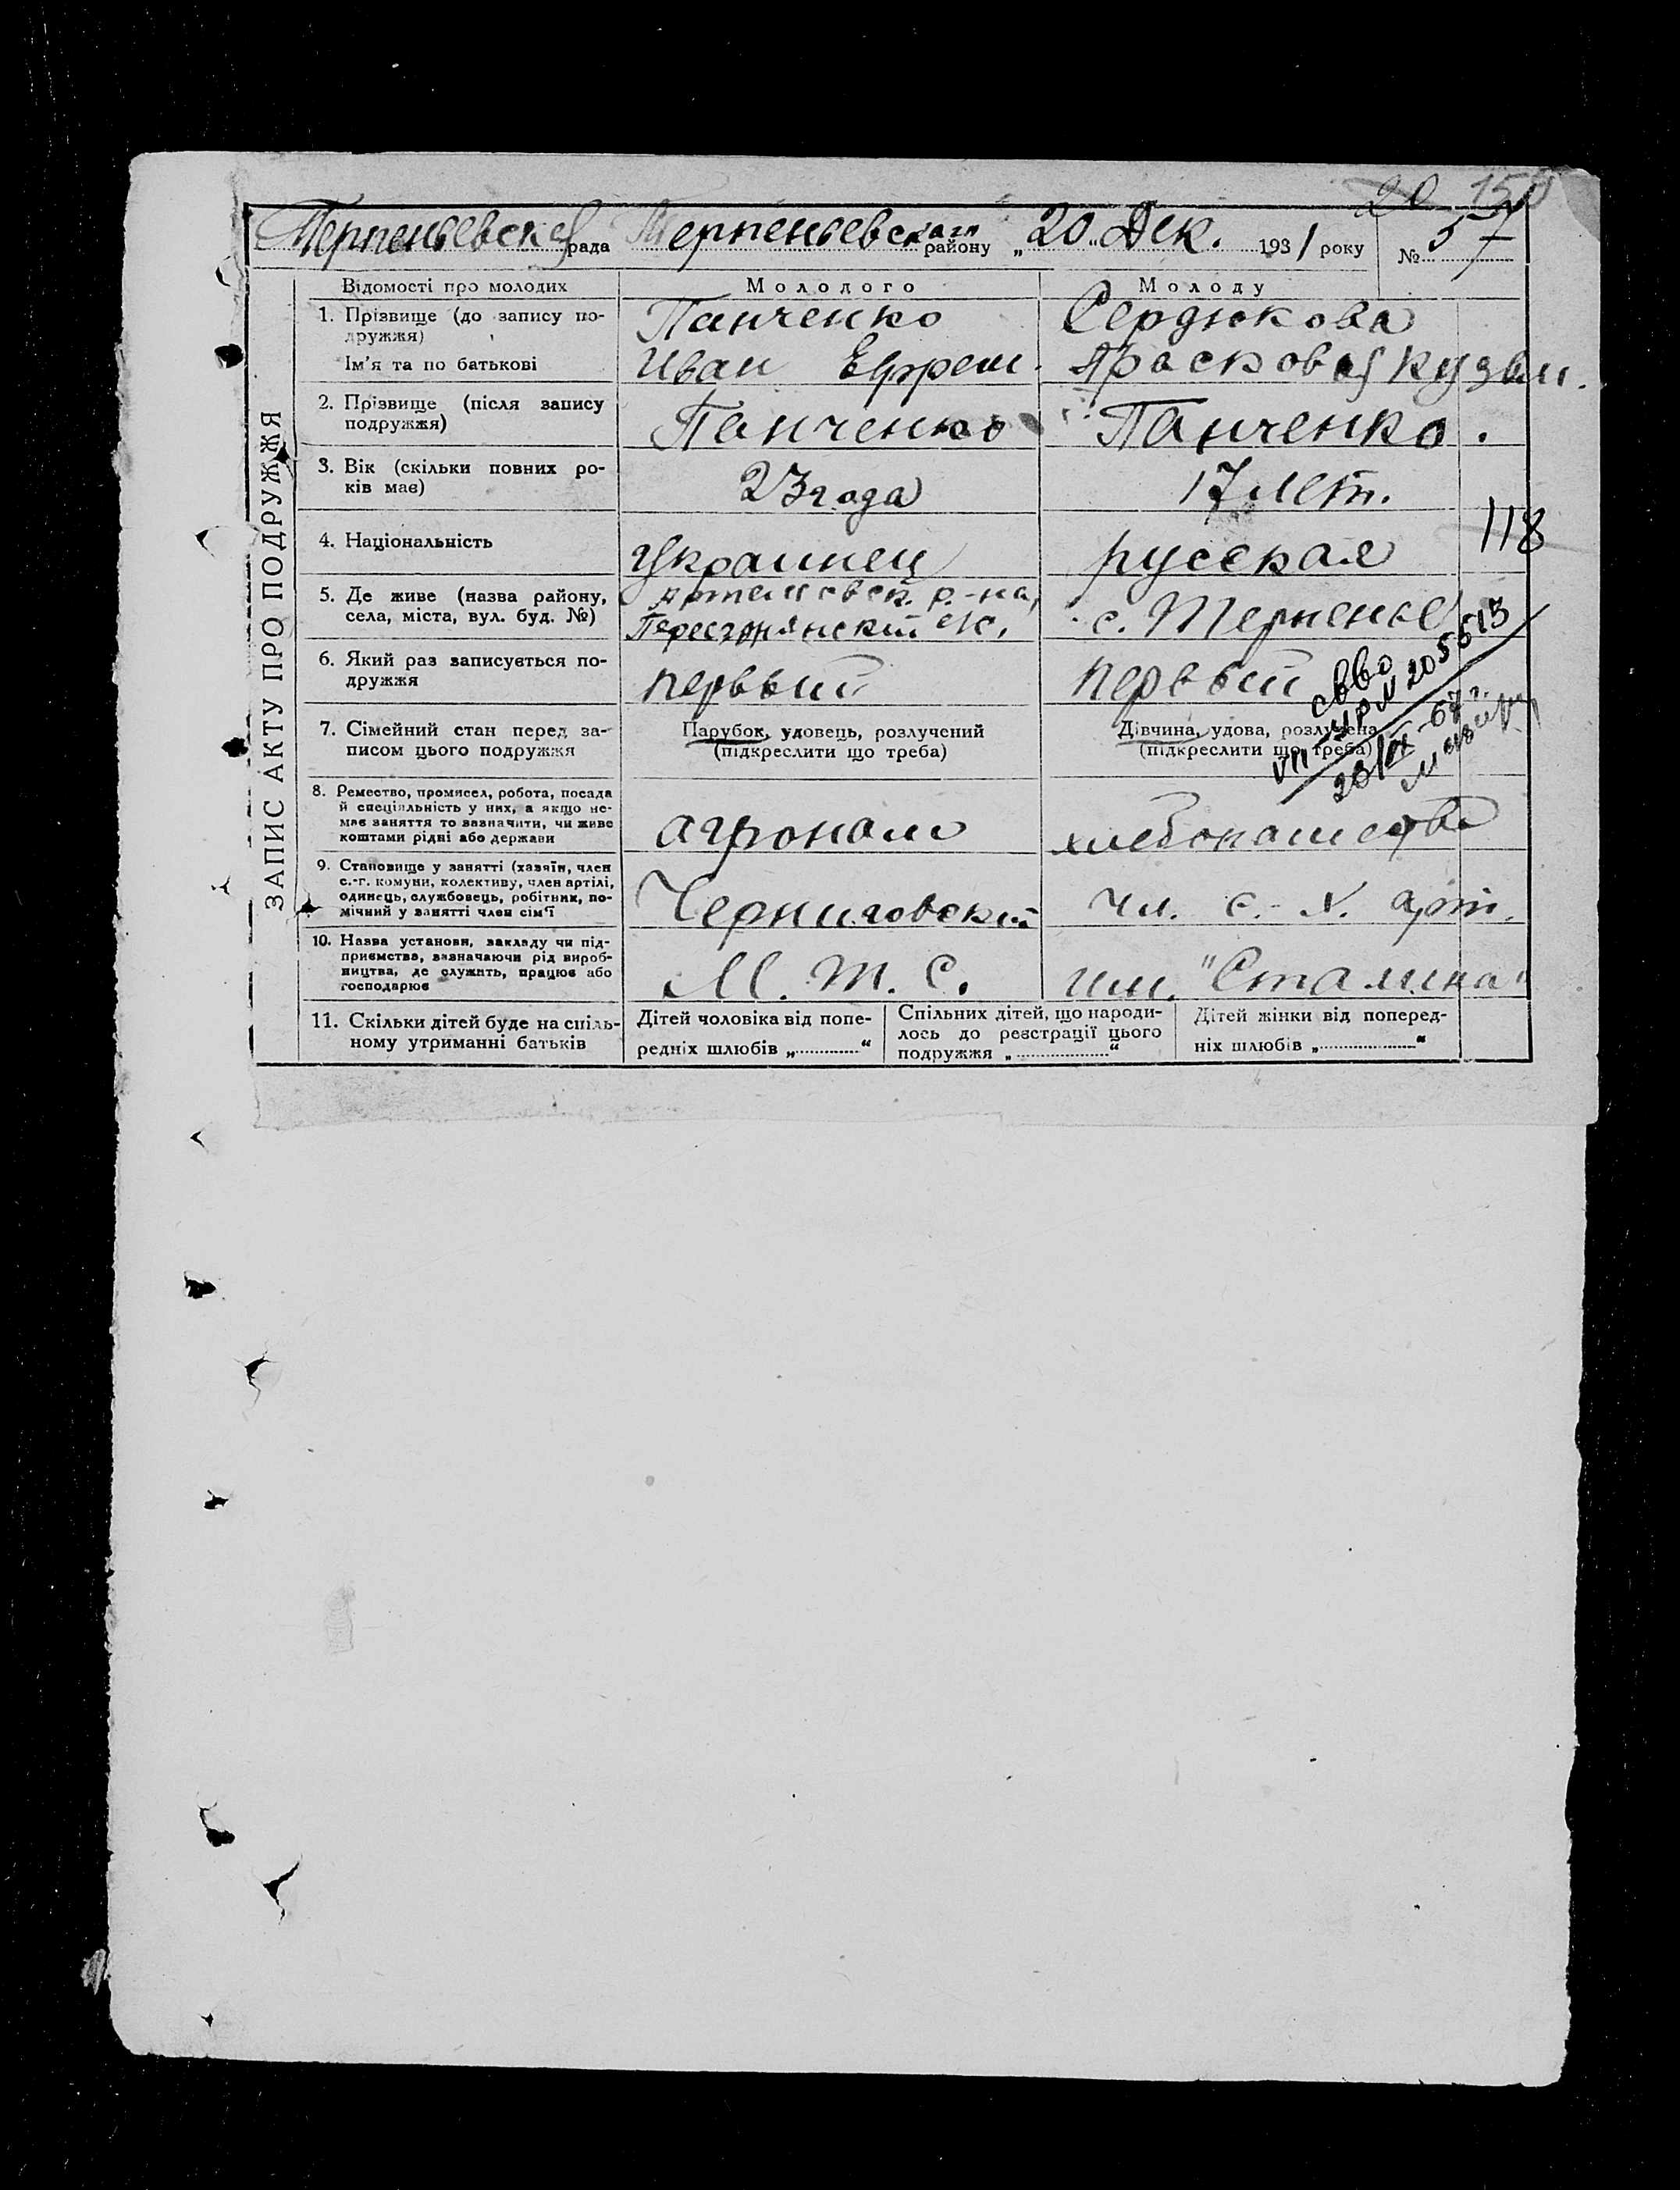 20 150
Терпеньевская рада Терпеньевскаго району „20“ Дек. 1931 року № 57
ЗАПИС АКТУ ПРО ПОДРУЖЖЯ
Відомості про молодих Молодого Молоду
1. Прізвище (до запису по-
дружжя) Панченко Сердюкова
Ім'я та по батькові Иван Ефрем. Прасковья Кузьм.
2. Прізвище (після запису
подружжя) Панченко Панченко.
3. Вік (скільки повних ро-
ків має) 23 года 17 лет.
118
4. Національність Украинец русская
5. Де живе (назва району,
села, міста, вул. буд. №) р-на, с. Терпенье
6. Який раз записується по-
дружжя первый первый
7. Сімейний стан перед за-
писом цього подружжя
Парубок, удовець, розлучений
(підкреслити що треба)
Дівчина, удова, розлучена
(підкреслити що треба)
8. Ремество, промисел, робота, посада
й спеціяльність у них, а якщо не-
має заняття то зазначити, чи живе
коштами рідні або держави
агроном хлебопашество
9. Становище у занятті (хазяїн, член
с.-г. комуни, колективу, член артілі,
одинець, службовець, робітник, по-
мічний у занятті член сім'ї
Черниговский чл. с.-х. арт.
10. Назва установи, закладу чи під-
приємства, зазначаючи рід вироб-
ництва, де служить, працює або
господарює
М. Т. С. им. "Сталина"
11. Скільки дітей буде на спіль-
ному утриманні батьків
Дітей чоловіка від попе-
редніх шлюбів „............“
Спільних дітей, що народи-
лось до реєстрації цього
подружжя „............“
Дітей жінки від поперед-
ніх шлюбів „............“